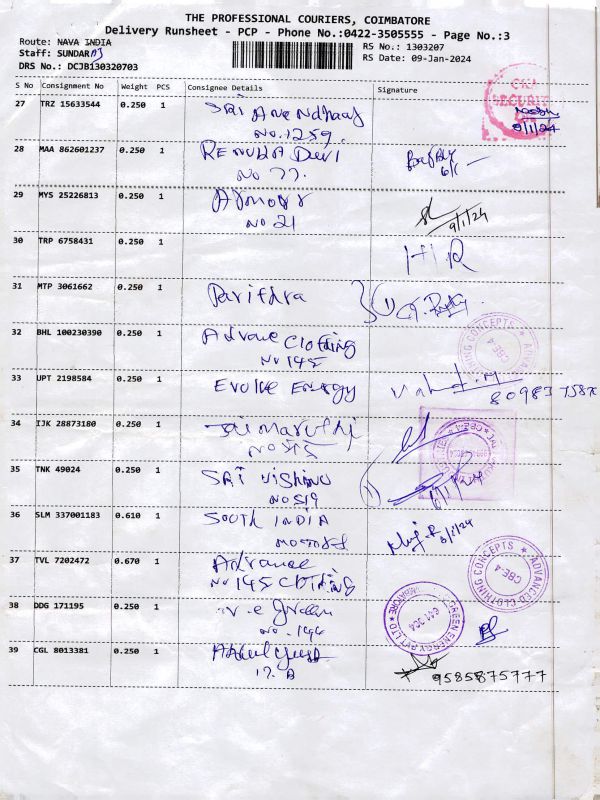 THE PROFESSIONAL COURIERS, COIMBATORE
Delivery Runsheet - PCP - Phone No.:0422-3505555 - Page No.:3
Route: NAVA INDIA
RS No.: 1303207
Staff: SUNDARAJ
RS Date: 09-Jan-2024
DRS No.: DCJB130320703
S No Consignment No Weight PCS Consignee Details Signature
27 TRZ 15633544 0.250 1 SRI
No.1259
9/1/24
28 MAA 862601237 0.250 1 RENUKA DEVI
No 77.
29 MYS 25226813 0.250 1
No 21
9/1/24
30 TRP 6758431 0.250 1
31 MTP 3061662 0.250 1 Parithra
32 BHL 100230390 0.250 1 Advane Clothing
No 145
ADVANCED CLOTHING CONCEPTS
CBE-4
33 UPT 2198584 0.250 1 EVOLVE ENERGY
34 IJK 28873180 0.250 1 Sri maruthi
No 515
35 TNK 49024 0.250 1 SRI VISHNU
No 519
36 SLM 337001183 0.610 1 SOUTH INDIA
37 TVL 7202472 0.670 1 Advance
No 145 Clothing
ADVANCED CLOTHING CONCEPTS
CBE-4
38 DDG 171195 0.250 1
No. 144
GREEN ENERGY PVT LTD
641 004
39 CGL 8013381 0.250 1
17. B
9585875777